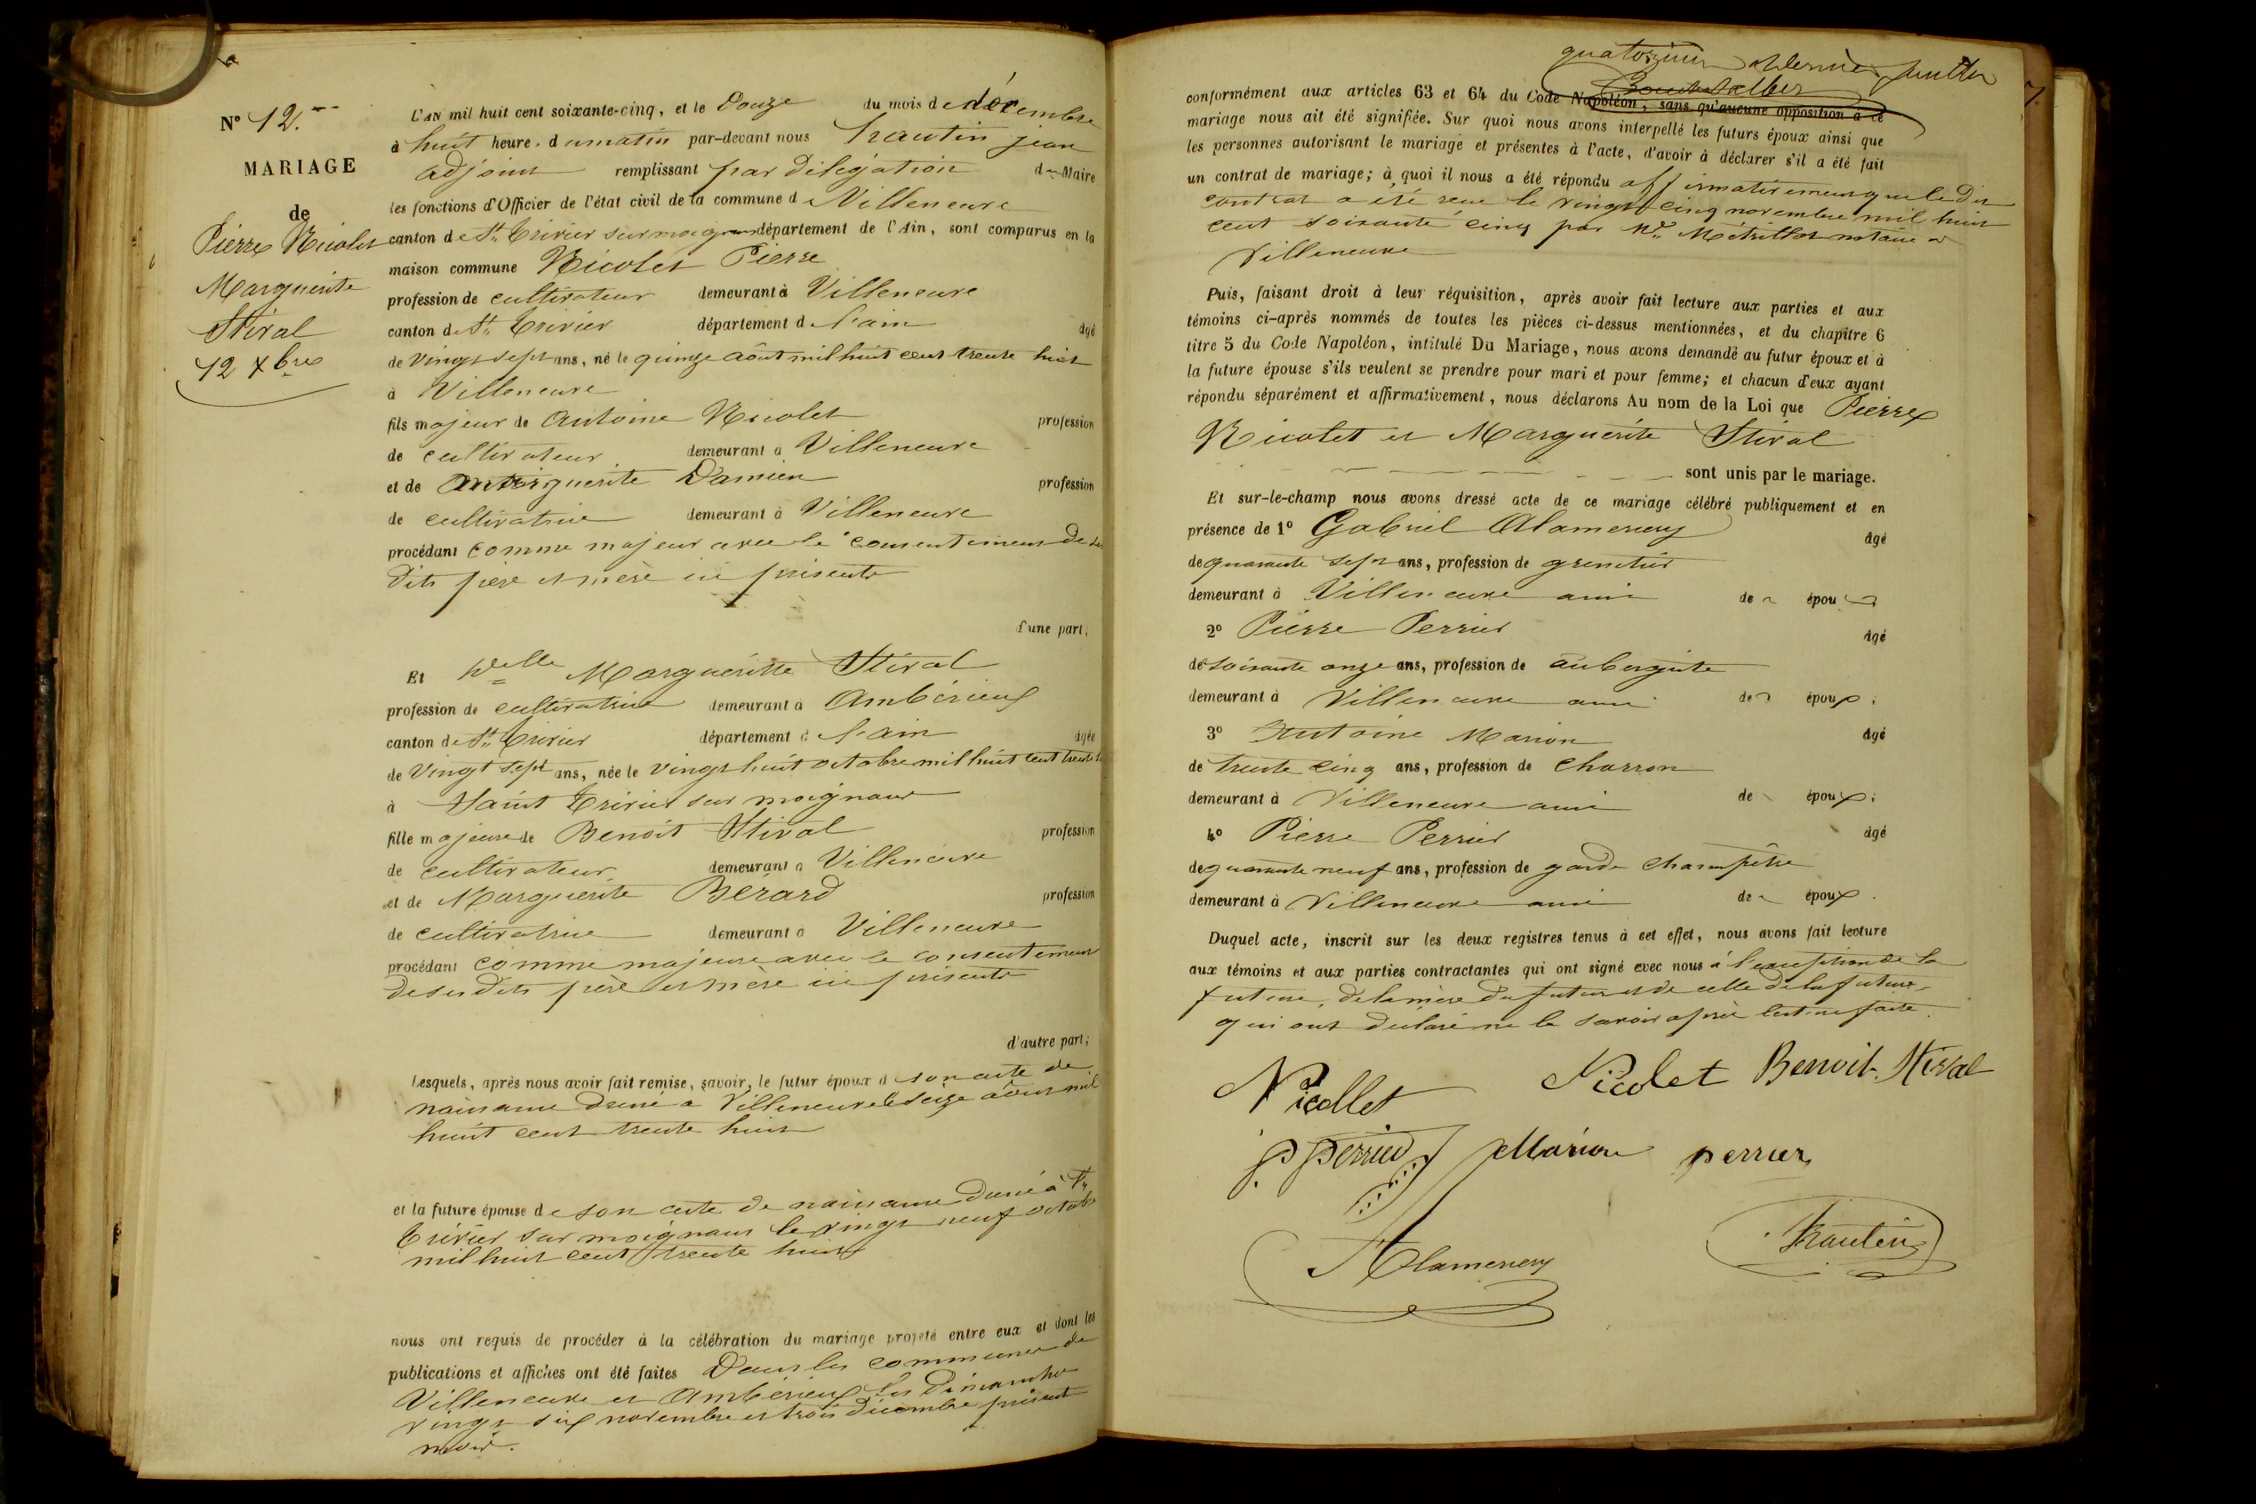 N° 12.
MARIAGE
de
Pierre Nicolet
Marguerite
Stival
12 Xbre
L'AN mil huit cent soixante-cinq, et le Douze du mois de décembre
à huit heure. du matin par-devant nous Trautin jean
adjoint remplissant par délégation du Maire
les fonctions d'Officier de l'état civil de la commune d Villeneuve
canton de St Trivier sur moignans département de l'Ain, sont comparus en la
maison commune Nicolet Pierre
profession de cultivateur demeurant à Villeneuve
canton de St Trivier département d l'ain âgé
de Vingt sept ans, né le quinze août mil huit cent trente huit
à Villeneuve
fils majeur de Antoine Nicolet profession
de cultivateur demeurant à Villeneuve
et de Marguerite Damien profession
de cultivatrice demeurant à Villeneuve
procédant comme majeur avec le consentement de ses
dits père et mère ici présents
d'une part;
Et Delle Marguerite Stival
profession de cultivatrice demeurant à Ambérieux
canton de St Trivier département d l'ain âgée
de Vingt sept ans, née le vingt huit octobre mil huit cent trente
à Saint Trivier sur moignans
fille majeure de Benoit Stival profession
de cultivateur demeurant à Villeneuve
et de Marguerite Bérard profession
de cultivatrice demeurant à Villeneuve
procédant comme majeure avec le consentement
de ses dits père et mère ici présents
d'autre part;
Lesquels, après nous avoir fait remise, savoir, le futur époux d son acte de
naissance dressé à Villeneuve le seize août mil
huit cent trente huit
et la future épouse de son acte de naissance dressé à St
Trivier sur moignans le vingt neuf octobre
mil huit cent trente huit
nous ont requis de procéder à la célébration du mariage projeté entre eux et dont les
publications et affiches ont été faites Dans les communes de
Villeneuve et Ambérieux les Dimanche
vingt six novembre et trois décembre présent
mois.
7.
conformément aux articles 63 et 64 du Code Napoléon, sans qu'aucune opposition à ce
mariage nous ait été signifiée. Sur quoi nous avons interpellé les futurs époux ainsi que
les personnes autorisant le mariage et présentes à l'acte, d'avoir à déclarer s'il a été fait
un contrat de mariage; à quoi il nous a été répondu affirmativement que le dit
contrat a été reçu le vingt cinq novembre mil huit
cent soixante cinq par Me Métrillot notaire à
Villeneuve
Puis, faisant droit à leur réquisition, après avoir fait lecture aux parties et aux
témoins ci-après nommés de toutes les pièces ci-dessus mentionnées, et du chapitre 6
titre 5 du Code Napoléon, intitulé Du Mariage, nous avons demandé au futur époux et à
la future épouse s'ils veulent se prendre pour mari et pour femme; et chacun d'eux ayant
répondu séparément et affirmativement, nous déclarons Au nom de la Loi que Pierre
Nicolet et Marguerite Stival
sont unis par le mariage.
Et sur-le-champ nous avons dressé acte de ce mariage célébré publiquement et en
présence de 1° Gabriel Alamercery âgé
de quarante sept ans, profession de grenetier
demeurant à Villeneuve ami de épou
2° Pierre Perrier âgé
de soixante onze ans, profession de aubergiste
demeurant à Villeneuve ami de époux;
3° Antoine Marion âgé
de trente cinq ans, profession de charron
demeurant à Villeneuve ami de époux;
4° Pierre Perrier âgé
de quarante neuf ans, profession de garde champêtre
demeurant à Villeneuve ami de époux.
Duquel acte, inscrit sur les deux registres tenus à cet effet, nous avons fait lecture
aux témoins et aux parties contractantes qui ont signé avec nous à l'exception de la
future, de la mère du futur et de celle de la future
qui ont déclaré ne le savoir après lecture faite.
Nicollet Nicolet Benoit Stival
P Perrier Marion perrier
Alamercery Trautin